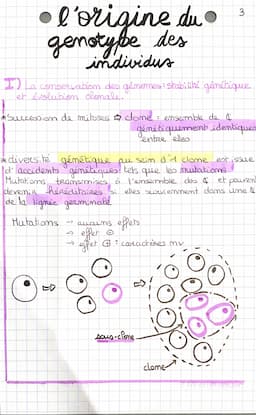 3
l'origine du
génotype des
individus
I) La conservation des génomes : stabilité génétique
et évolution clonale.
Succession de mitoses ⇒ clone : ensemble de ¢
génétiquement identiques
entre elles
diversité génétique au sein d'1 clone est issue
d'accidents génétiques tels que les mutations
Mutations transmises à l'ensemble des ¢ et peuvent
devenir héréditaires si elles surviennent dans une ¢
de la lignée germinale
Mutations → aucuns effets
→ effet ⊖
→ effet ⊕ : caractères mv
sous-clone
clone